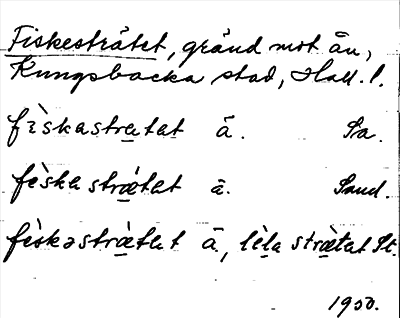 Fiskesträtet, gränd mot ån,
Kungsbacka stad, Hall. l.
fìskastratat ä. Sa.
fèska strätat ä. Sand.
fèskəsträ̀tət ä, lèla strätat St.
1950.